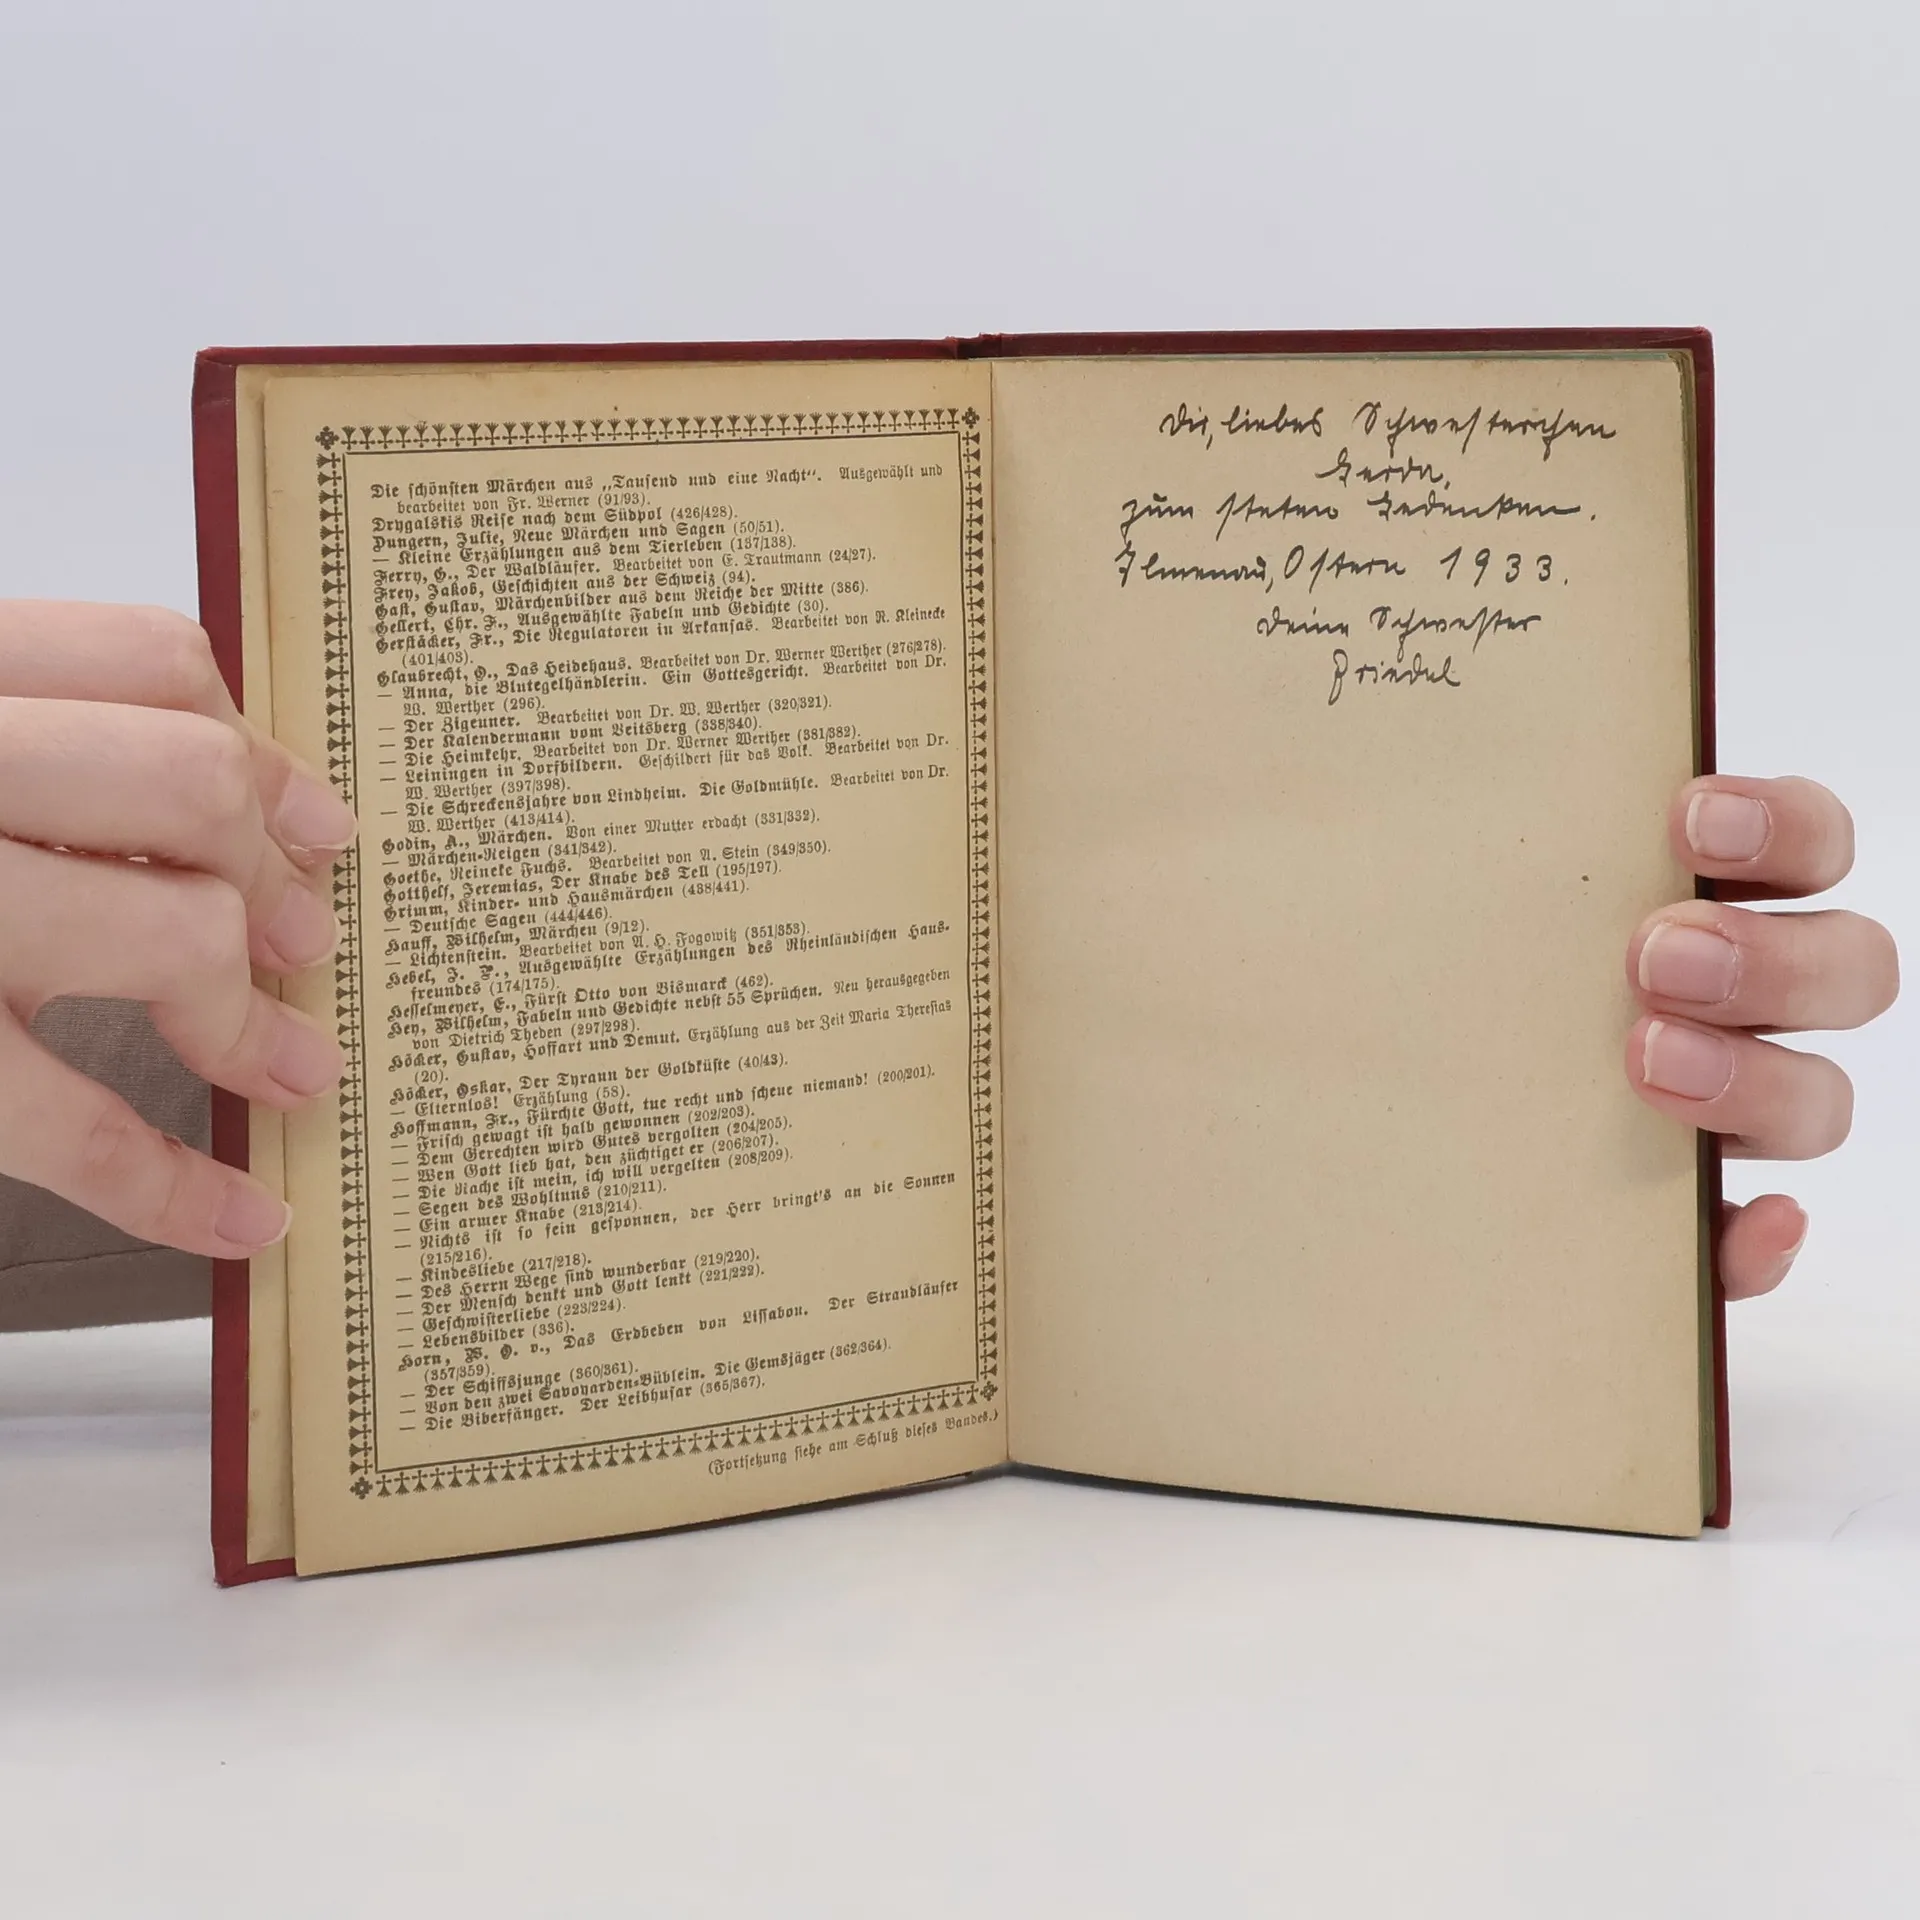 Die schönsten Märchen aus „Tausend und eine Nacht“. Ausgewählt und
bearbeitet von Fr. Werner (91/93).
Drygalskis Reise nach dem Südpol (426/428).
Dungern, Julie, Neue Märchen und Sagen (50/51).
— Kleine Erzählungen aus dem Tierleben (137/138).
Ferry, G., Der Waldläufer. Bearbeitet von E. Trautmann (24/27).
Frey, Jakob, Geschichten aus der Schweiz (94).
Gast, Gustav, Märchenbilder aus dem Reiche der Mitte (386).
Gellert, Chr. F., Ausgewählte Fabeln und Gedichte (30).
Gerstäcker, Fr., Die Regulatoren in Arkansas. Bearbeitet von R. Kleinecke
(401/403).
Glaubrecht, O., Das Heidehaus. Bearbeitet von Dr. Werner Werther (276/278).
— Anna, die Blutegelhändlerin. Ein Gottesgericht. Bearbeitet von Dr.
W. Werther (296).
— Der Zigeuner. Bearbeitet von Dr. W. Werther (320/321).
— Der Kalendermann vom Veitsberg (338/340).
— Die Heimkehr. Bearbeitet von Dr. Werner Werther (381/382).
— Leiningen in Dorfbildern. Geschildert für das Volk. Bearbeitet von Dr.
W. Werther (397/398).
— Die Schreckensjahre von Lindheim. Die Goldmühle. Bearbeitet von Dr.
W. Werther (413/414).
Godin, A., Märchen. Von einer Mutter erdacht (331/332).
— Märchen-Reigen (341/342).
Goethe, Reineke Fuchs. Bearbeitet von A. Stein (349/350).
Gotthelf, Jeremias, Der Knabe des Tell (195/197).
Grimm, Kinder- und Hausmärchen (438/441).
— Deutsche Sagen (444/446).
Hauff, Wilhelm, Märchen (9/12).
— Lichtenstein. Bearbeitet von A. H. Fogowitz (351/353).
Hebel, J. P., Ausgewählte Erzählungen des Rheinländischen Haus-
freundes (174/175).
Hesselmeyer, E., Fürst Otto von Bismarck (462).
Hey, Wilhelm, Fabeln und Gedichte nebst 55 Sprüchen. Neu herausgegeben
von Dietrich Theden (297/298).
Höcker, Gustav, Hoffart und Demut. Erzählung aus der Zeit Maria Theresias
(20).
Höcker, Oskar, Der Tyrann der Goldküste (40/43).
— Elternlos! Erzählung (58).
Hoffmann, Fr., Fürchte Gott, tue recht und scheue niemand! (200/201).
— Frisch gewagt ist halb gewonnen (202/203).
— Dem Gerechten wird Gutes vergolten (204/205).
— Wen Gott lieb hat, den züchtiget er (206/207).
— Die Rache ist mein, ich will vergelten (208/209).
— Segen des Wohltuns (210/211).
— Ein armer Knabe (213/214).
— Nichts ist so fein gesponnen, der Herr bringt's an die Sonnen
(215/216).
— Kindesliebe (217/218).
— Des Herrn Wege sind wunderbar (219/220).
— Der Mensch denkt und Gott lenkt (221/222).
— Geschwisterliebe (223/224).
— Lebensbilder (336).
Horn, W. O. v., Das Erdbeben von Lissabon. Der Strandläufer
(357/359).
— Der Schiffsjunge (360/361).
— Von den zwei Savoyarden-Büblein. Die Gemsjäger (362/364).
— Die Biberfänger. Der Leibhusar (365/367).
(Fortsetzung siehe am Schluß dieses Bandes.)
Dir, liebes Schwesterchen
Gerda,
zum steten Gedenken.
Ilmenau, Ostern 1933.
Deine Schwester
Friedel